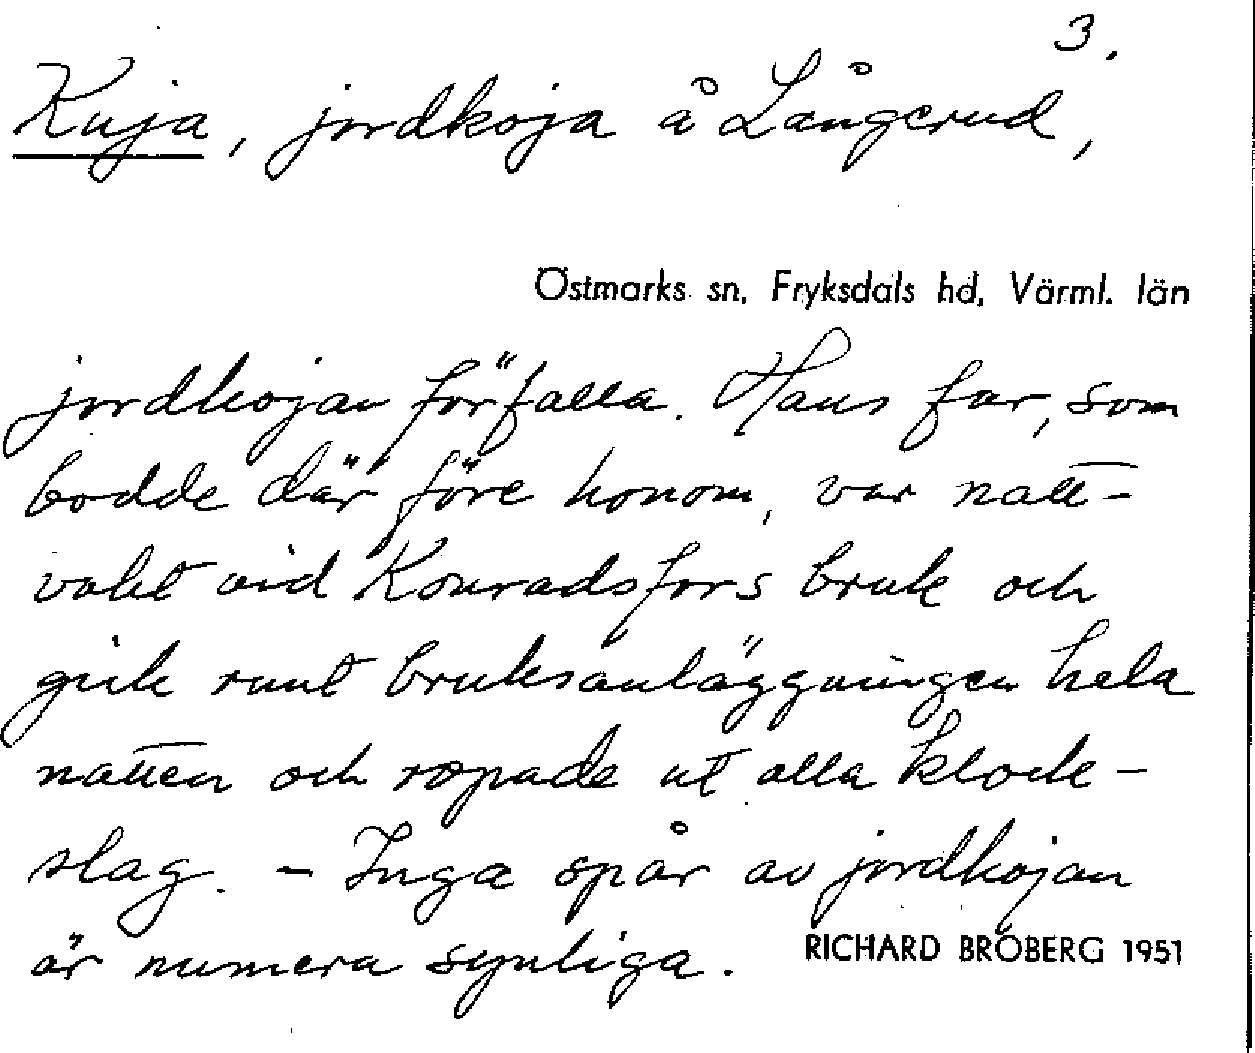 3.
Kuja, jordkoja å Långerud,
Östmarks sn. Fryksdals hd, Värml. län
jordkojan förfalla. Hans far, som
bodde där före honom, var natt-
vakt vid Konradsfors bruk och
gick runt bruksanläggningen hela
natten och ropade ut alla klock-
slag. - Inga spår av jordkojan
är numera synliga.
RICHARD BROBERG 1951